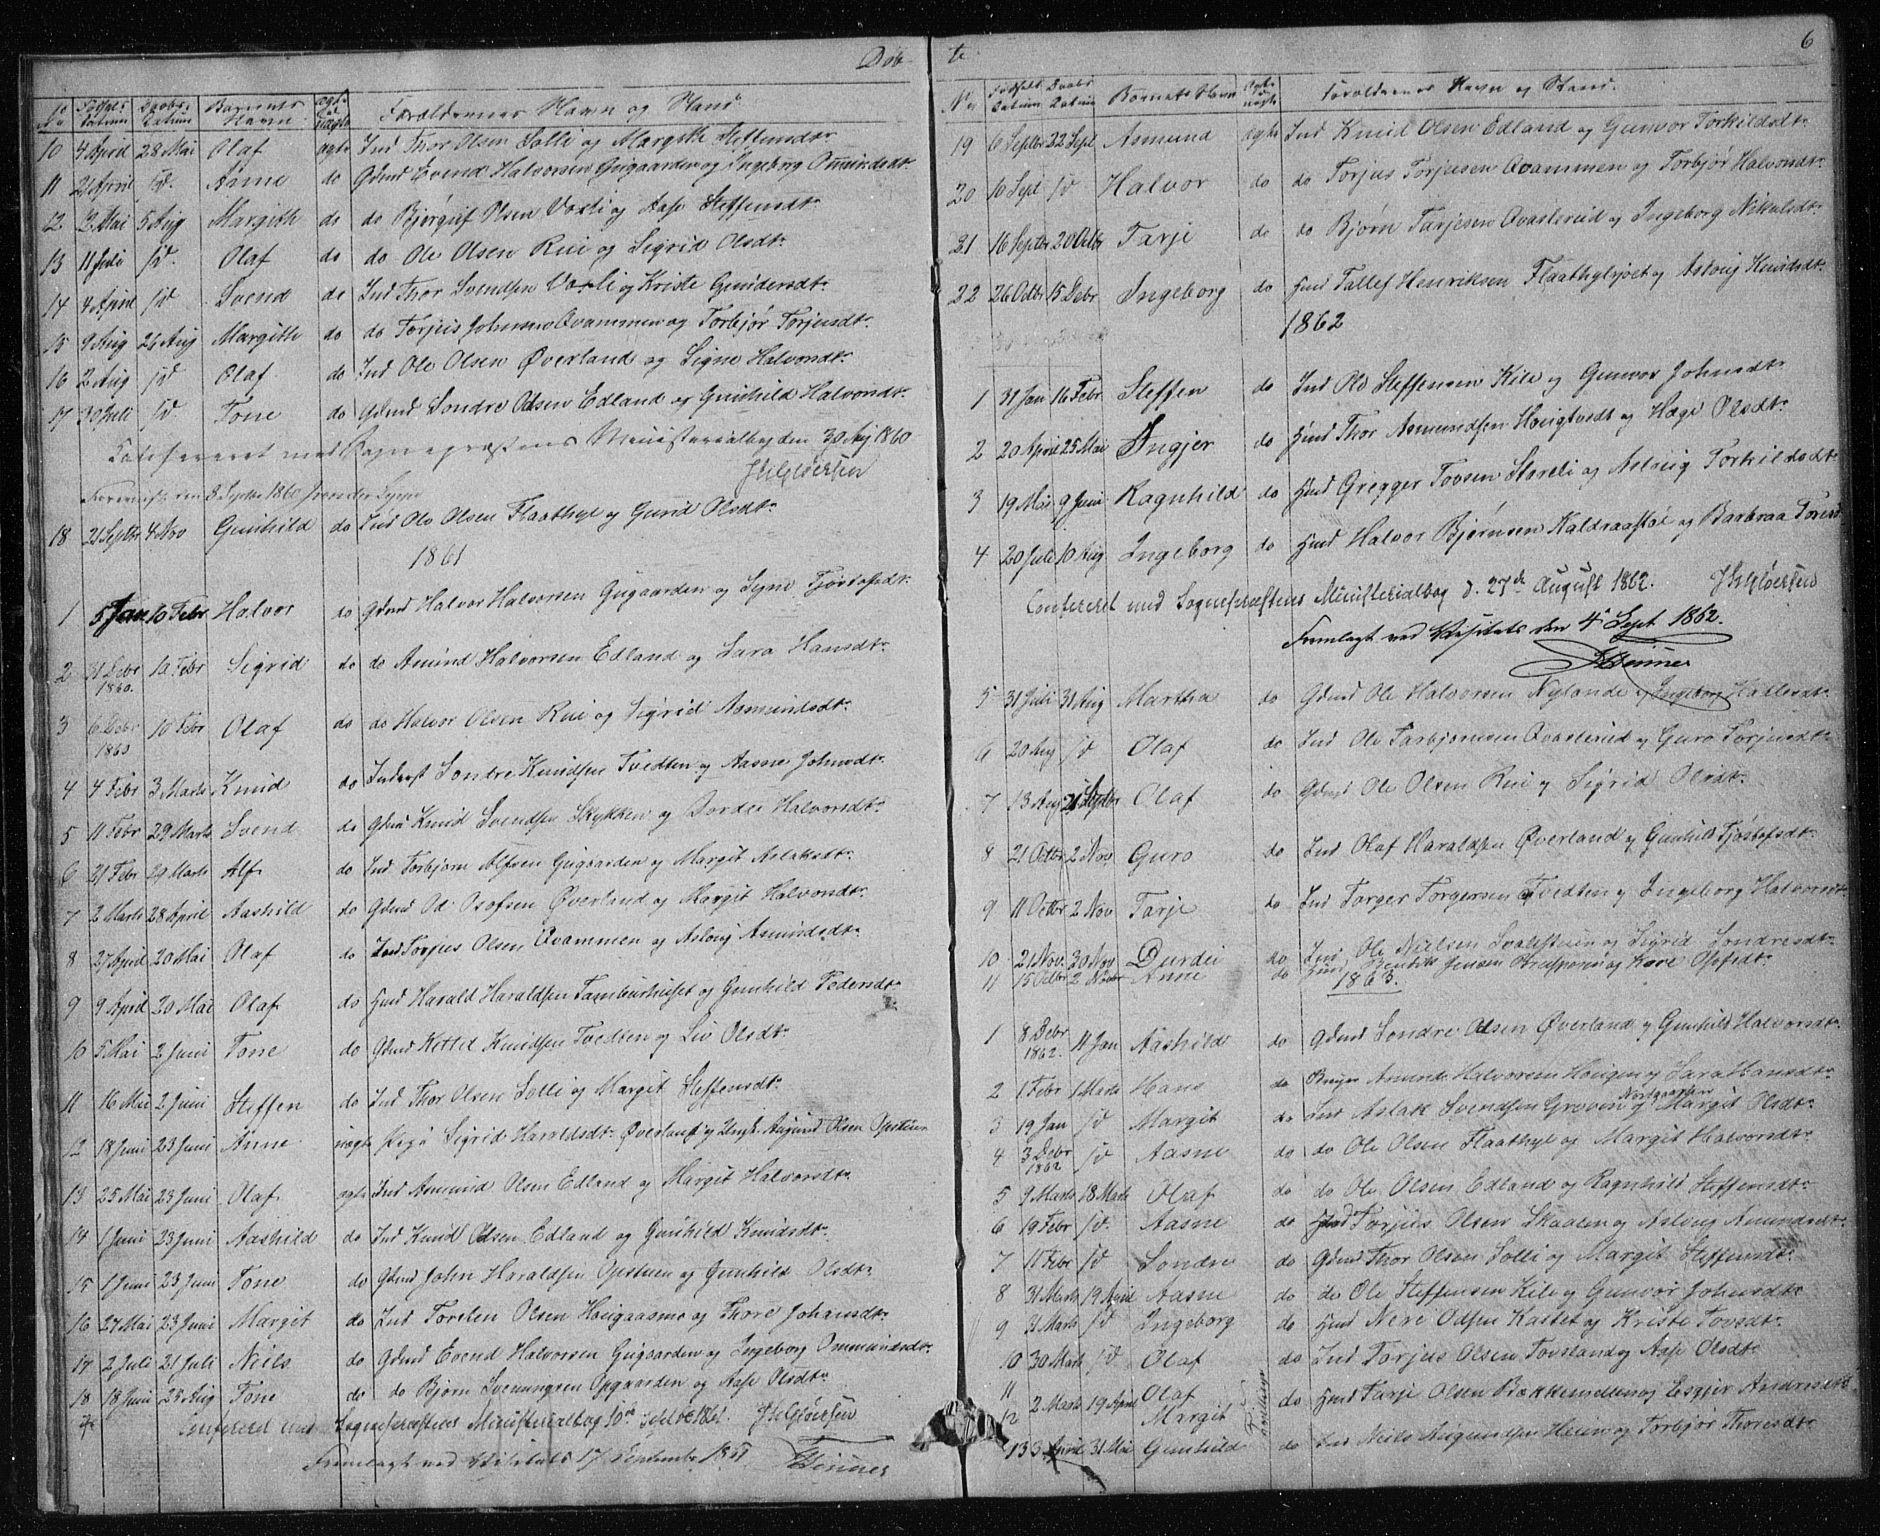 Døb-
No Fødsels Datum Daabs Datum Barnets Navn ægte el. uægte Forældrenes Navn og Stand
10 4 April 28 Mai Olaf ægte Ind Thor Olsen Solli og Margith Steffensdtr
11 21 April id. Anne do Gdmd Evend Halvorsen Gugaarden og Ingeborg Omundsdtr
12 2 Mai 5 Aug Margith do do Bjørguf Olsen Vaxli og Aase Steffensdtr
13 11 Juli id. Olaf do do Ole Olsen Rui og Sigrid Olsdtr
14 4 April id Svend do Ind Thor Svendsen Vaxli og Kriste Gundersdtr
15 9 Aug 26 Aug Margith do do Torjus Johnsen Qvammen og Torbjør Torjusdtr
16 2 Aug id Olaf do Ind Ole Olsen Øverland og Signe Halvorsdtr
17 30 Juli id Tone do Gdmd Sondre Olsen Edland og Gunhild Halvorsdtr
Confereret med Sognepræstens Ministerialbog den 30 Aug 1860
18 21 Septbr 4 Nov Gunhild do Ind Ole Olsen Flaathyl og Gunild Olsdtr
1861
1 5 Jan 10 Febr Halvor do Gdmd Halvor Halvorsen Gugaarden og Signe Tjostofsdtr
2 31 Debr 1860. 10 Febr Sigrid do do Amund Halvorsen Edland og Sara Hansdtr
3 6 Debr 1860 10 Febr Olaf do do Halvor Olsen Rui og Sigrid Asmundsdtr
4 4 Febr 3 Marts Knud do Inderst Sondre Knudsen Tvedten og Aasne Johnsdtr
5 11 Febr 29 Marts Svend do Gdmd Knud Svendsen Skykken og Dordei Halvorsdtr
6 21 Febr 29 Marts Alf do Ind Torbjørn Alfsen Gugaarden og Margit Aslaksdtr
7 2 Marts 28 April Aashild do Gdmd Od Olofsen Øverland og Margit Halvorsdtr
8 27 April 20 Mai Olaf do Ind Torjus Olsen Qvammen og Aslaug Asmundsdtr
9 9 April 20 Mai Olaf do Hmd Harald Haraldsen Tamburhuset og Gunhild Pedersdtr
10 5 Mai 2 Juni Tone do Gdmd Kittil Knudsen Tvedten og Liv Olsdtr
11 16 Mai 2 Juni Steffen do Ind Thor Olsen Solli og Margit Steffensdtr
12 18 Juni 23 Juni Anne uægte Pige Sigrid Haraldsdtr Øverland og Ungk. Aasmund Olsen Opstuen
13 25 Mai 23 Juni Olaf ægte Ind Asmund Olsen Edland og Margit Halvorsdtr
14 1 Juni 23 Juni Aashild do Ind Knud Olsen Edland og Gunhild Knudsdtr
15 1 Juni 23 Juni Tone do Gdmd John Haraldsen Opstuen og Gunhild Olsdtr
16 27 Mai 23 Juni Margit do Ind Torsten Olsen Hougaasmo og Thore Johansdtr
17 2 Juli 21 Juli Niels do Gdmd Evend Halvorsen Gugaarden og Ingeborg Ommundsdtr
18 18 Juni 25 Aug Tone do do Bjørn Svenungsen Opgaarden og Aase Olsdtr
Confereret med Sognepræstens Ministerialbog 10de Septbr 1861.
Fremlagt ved Visitats 17 September 1861
te 6
No Fødsels Datum Daabs Datum Barnets Navn Ægte uægte Forældrenes Navn og Stand.
19 6 Septbr 22 Sept Asmund ægte Ind Knud Olsen Edland og Gunvor Torkildsdtr
20 10 Sept id Halvor do do Torjus Torjusen Qvammen og Torbjør Halvorsdtr
21 16 Septbr 20 Octbr Tarje do do Bjørn Tarjesen Qvasterud og Ingeborg Nikulsdtr
22 26 Octbr 15 Debr Ingeborg do Hmd Tallef Henriksen Flaathylsjoet og Aslaug Knudsdtr
1862
1 31 Jan 16 Febr Steffen do Ind Ole Steffensen Kile og Gunvor Johnsdtr
2 20 April 25 Mai Ingjer do Hmd Thor Asmundsen Hougtvedt og Hæge Olsdtr
3 19 Mai 9 Juni Ragnhild do Hmd Gregger Tovsen Storeli og Aslaug Torkildsdtr
4 20 Juli 10 Aug Ingeborg do Hmd Halvor Bjørnsen Kaldraastøl og Barbraa Toresd
Confereret med Sognepræstens Ministerialbog d. 27de August 1862.
Fremlagt ved Visitats den 4de Sept 1862.
5 31 Juli 31 Aug Martha do Gdmd Ole Halvorsen Nylande og Ingeborg
6 20 Aug id Olaf do Ind Ole Tarbjørnsen Qvasterud og Guro Torjusdtr
7 13 Aug 21 Septbr Olaf do Gdmd Ole Olsen Rui og Sigrid Olsdtr
8 21 Octbr 2 Nov Guro do Ind Olaf Haraldsen Øverland og Gunhild Tjostofsdtr
9 11 Octbr 2 Nov Tarje do Ind Torger Torgersen Tvedten og Ingeborg Halvorsdtr
10 21 Nov. 30 Nov Durdei do Ind Ole Nielsen Svalestuen og Sigrid Sondresdtr
11 15 Octbr 2 Novbr Anne do
1863.
1 8 Debr 1862. 11 Jan Aashild do Gdmd Sondre Olsen Øverland og Gunhild Halvorsdtr
2 1 Febr 1 Marts Hans do Bruger Amund Halvorsen Hougen og Sara Hansdtr
3 19 Jan id Margit do Ind Aslak Svendsen Groven Nordgaarden og Margit Olsdtr
4 3 Debr 1862 id Aasne do do Ole Olsen Flaathyl og Margit Halvorsdtr
5 9 Marts 18 Marts Olaf do do Ole Olsen Edland og Ragnhild Steffensdtr
6 19 Febr id. Aasne do Hmd Torjus Olsen Skaalen og Aslaug Amundsdtr
7 11 Febr id Sondre do Gdmd Thor Olsen Solli og Margit Steffensdtr
8 31 Marts 19 April Aasne do do Ole Steffensen Kile og Gunvor Johnsdtr
9 31 Marts id Ingeborg do Hmd Neri Odsen Kastet og Kristi Tovsdtr
10 30 Marts id Olaf do Ind Torjus Olsen Tovsland og Aase Olsdtr
11 2 Marts 19 April Olaf do Hmd Tarje Olsen Bakkemellen og Esgjer Andersdtr
12 Margit
13 3 April 31 Mai Gunhild do Ind Niels Augundsen Heim og Torbjør Thoresdtr